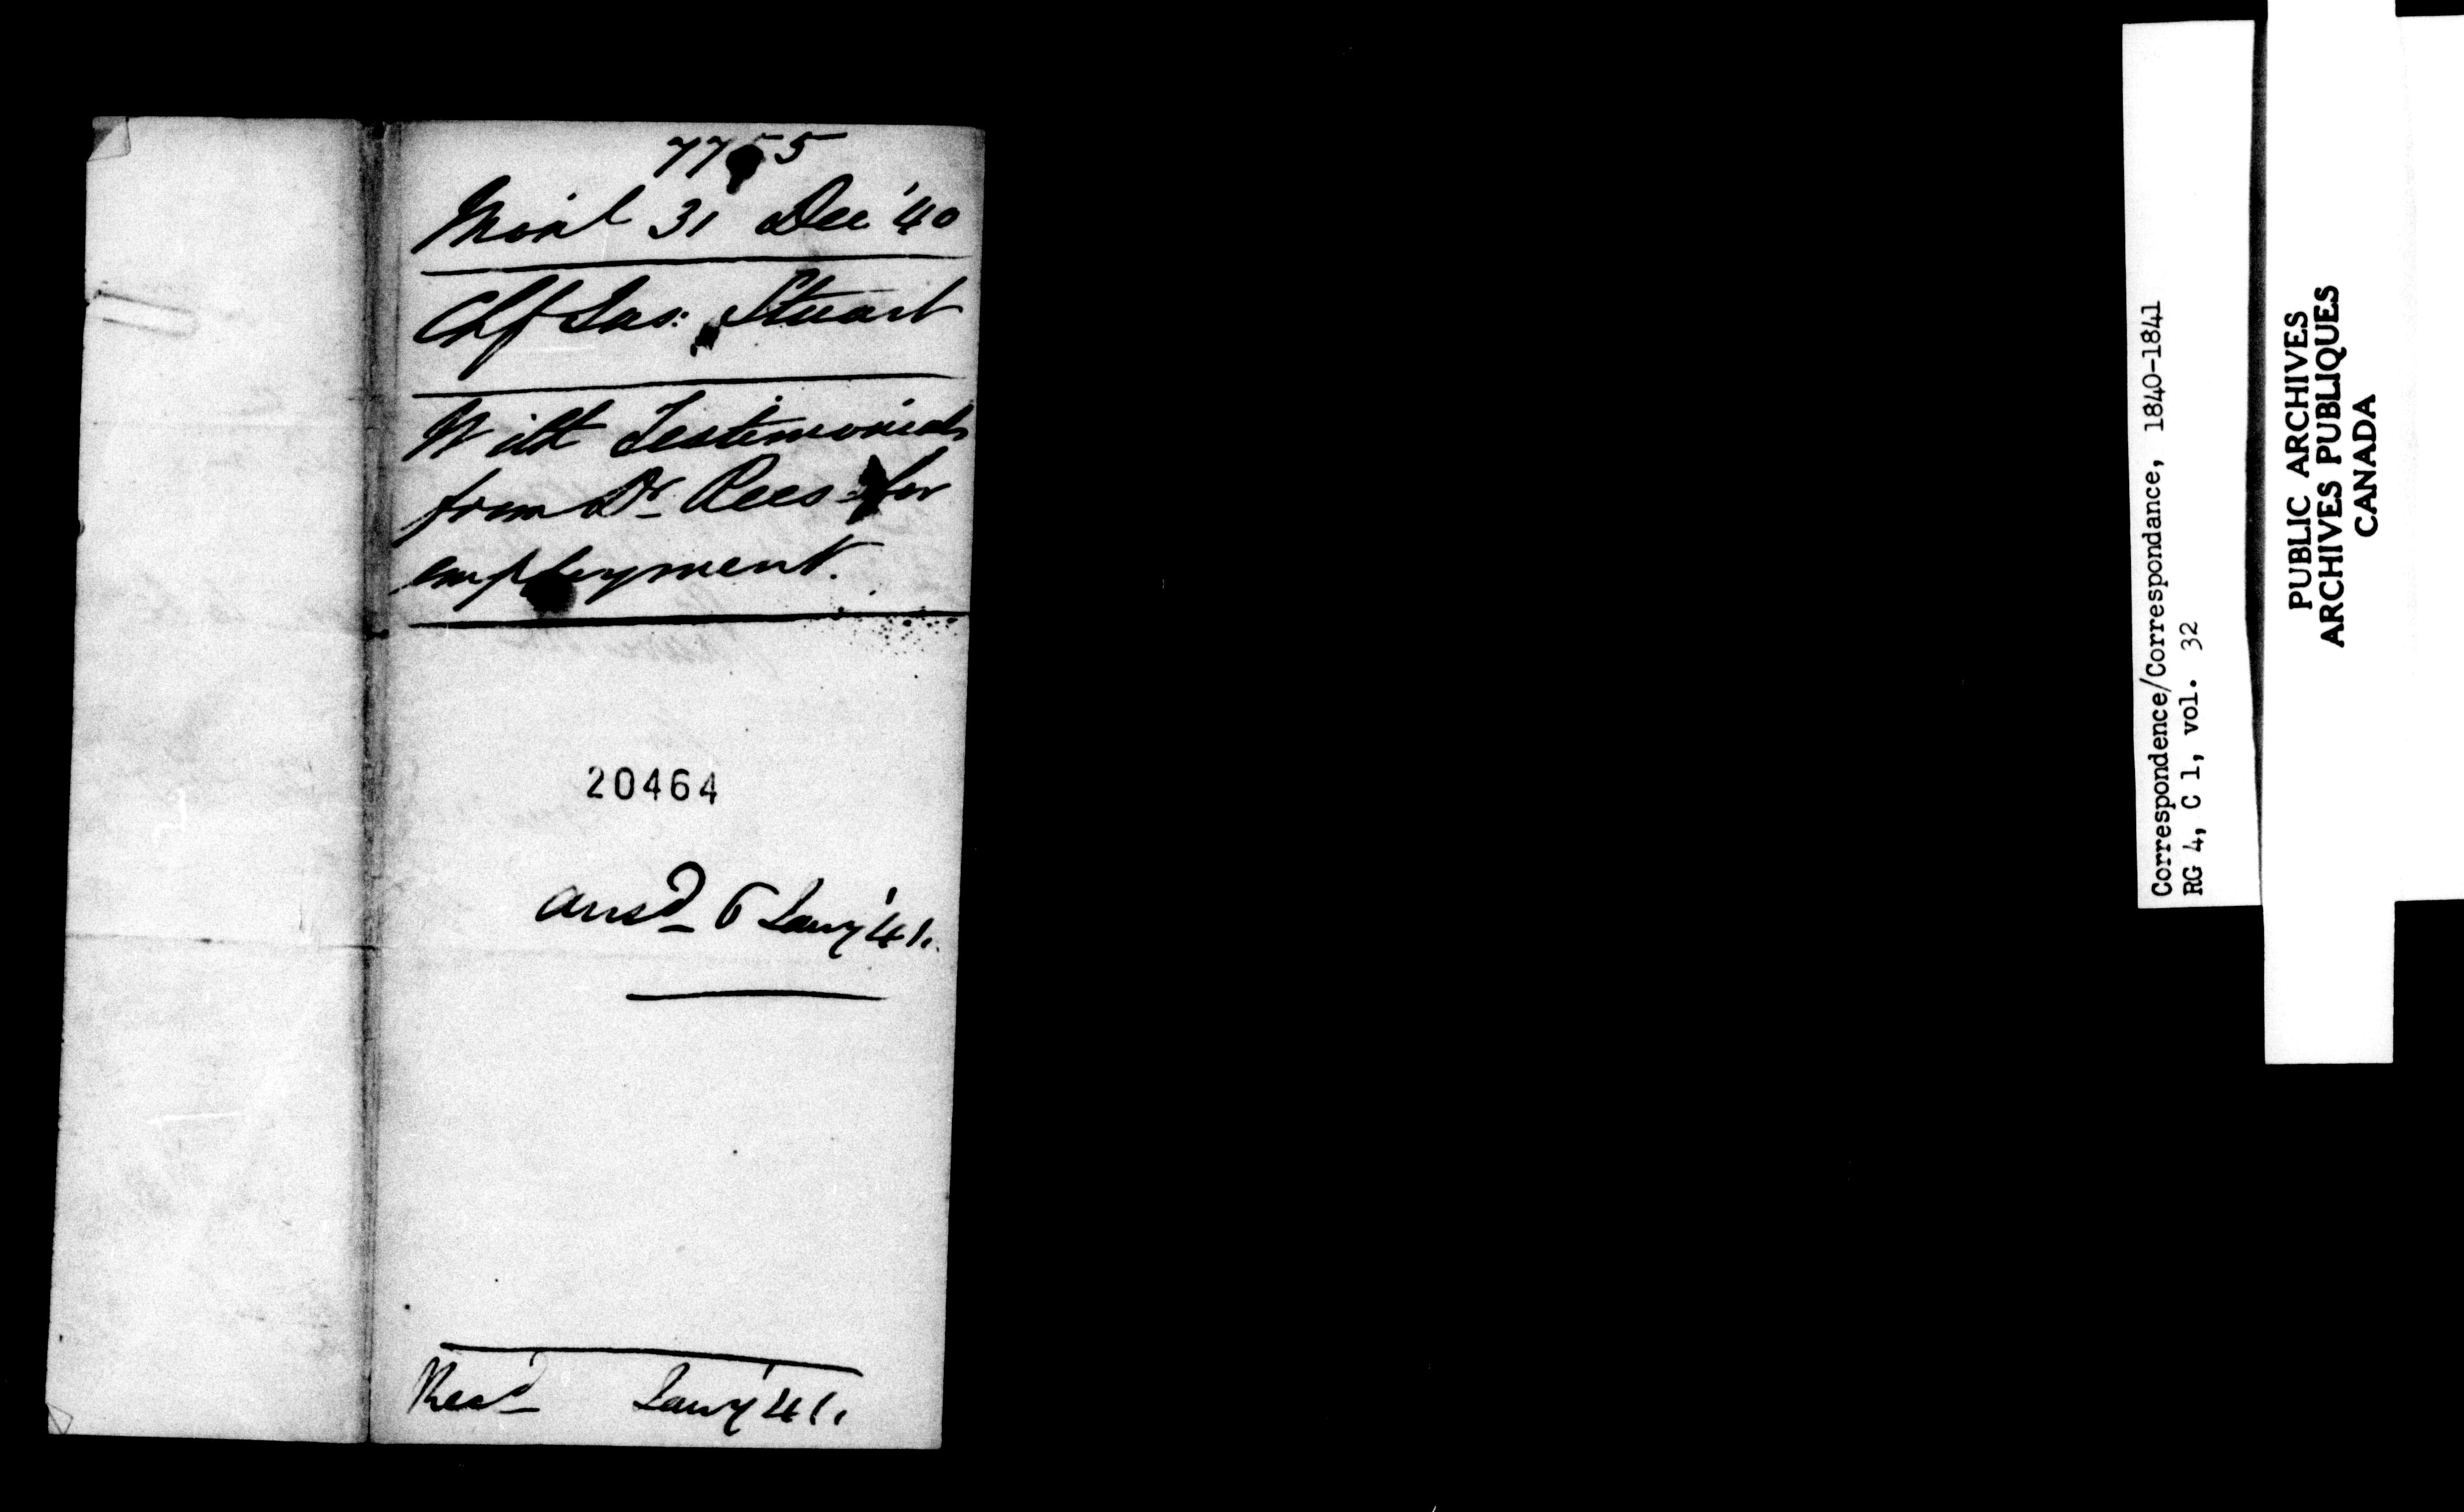 7755
Mon'l 31 Dec '40
Chf Jus: Stuart
With Testimonials
from Dr. Rees for
employment.
20464
ansd 6 Jany '41.
Recd Jany '41.
Correspondence/Correspondance, 1840-1841
RG 4, C 1, vol. 32
PUBLIC ARCHIVES
ARCHIVES PUBLIQUES
CANADA